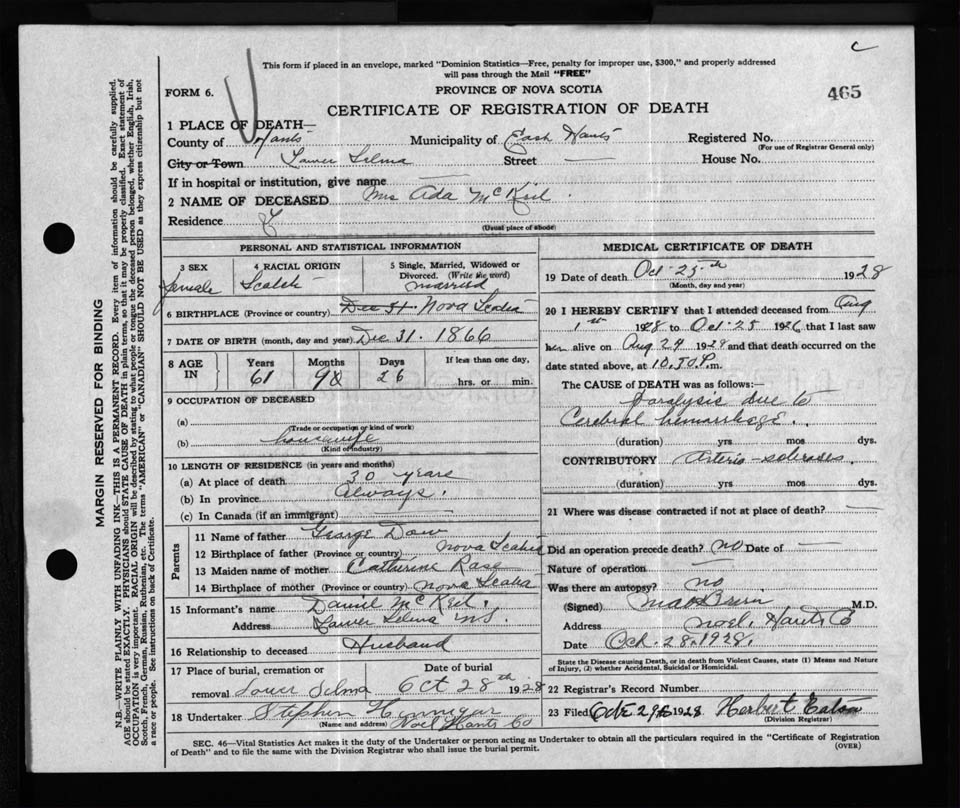 c
This form if placed in an envelope, marked "Dominion Statistics—Free, penalty for improper use, $300," and properly addressed
will pass through the Mail "FREE"
FORM 6.
PROVINCE OF NOVA SCOTIA
465
CERTIFICATE OF REGISTRATION OF DEATH
1 PLACE OF DEATH—
County of Hants Municipality of East Hants Registered No.
(For use of Registrar General only)
City or Town Lower Selma Street — House No.
If in hospital or institution, give name —
2 NAME OF DECEASED Mrs Ada McKeil
Residence
(Usual place of abode)
PERSONAL AND STATISTICAL INFORMATION
3 SEX 4 RACIAL ORIGIN 5 Single, Married, Widowed or Divorced. (Write the word)
female Scotch married
6 BIRTHPLACE (Province or country) Dec 31 Nova Scotia
7 DATE OF BIRTH (month, day and year) Dec 31. 1866
8 AGE IN Years Months Days If less than one day,
61 26 hrs. or min.
9 OCCUPATION OF DECEASED
(a)
(Trade or occupation or kind of work)
(b) housewife
(Kind of industry)
10 LENGTH OF RESIDENCE (in years and months)
(a) At place of death 30 years
(b) In province always.
(c) In Canada (if an immigrant)
Parents
11 Name of father George Dow
12 Birthplace of father (Province or country) Nova Scotia
13 Maiden name of mother Catherine Rose
14 Birthplace of mother (Province or country) Nova Scotia
15 Informant's name Daniel McKeil.
Address Lower Selma NS.
16 Relationship to deceased Husband
17 Place of burial, cremation or Date of burial
removal Lower Selma Oct 28th 1928
18 Undertaker Stephen Hennigar
(Name and address) Noel Hants Co
MEDICAL CERTIFICATE OF DEATH
19 Date of death Oct-25-th 1928
(Month, day and year)
20 I HEREBY CERTIFY that I attended deceased from Aug
1st 1928 to Oct. 25 1926 that I last saw
her alive on Aug 24 1928 and that death occurred on
date stated above, at 10.30 P.m.
The CAUSE of DEATH was as follows:—
Paralysis due to
Cerebral hemorrhage.
(duration) yrs mos dys.
CONTRIBUTORY Arterio-scleroses.
(duration) yrs. mos. dys.
21 Where was disease contracted if not at place of death? —
Did an operation precede death? no Date of —
Nature of operation —
Was there an autopsy? no
(Signed) M.D.
Address Noel, Hants Co
Date Oct. 28. 1928.
State the Disease causing Death, or in death from Violent Causes, state (1) Means and Nature
of Injury, (2) whether Accidental, Suicidal or Homicidal.
22 Registrar's Record Number
23 Filed Oct 29th 1928 Herbert Eaton
(Division Registrar)
SEC. 46—Vital Statistics Act makes it the duty of the Undertaker or person acting as Undertaker to obtain all the particulars required in the "Certificate of Registration
of Death" and to file the same with the Division Registrar who shall issue the burial permit.
(OVER)
MARGIN RESERVED FOR BINDING
N.B.—WRITE PLAINLY WITH UNFADING INK—THIS IS A PERMANENT RECORD. Every item of information should be carefully supplied.
AGE should be stated EXACTLY. PHYSICIANS should STATE CAUSE OF DEATH in plain terms, so that it may be properly classified. Exact statement of
OCCUPATION is very important. RACIAL ORIGIN will be described by stating to what people or tongue the deceased person belonged, whether English, Irish,
Scotch, French, German, Russian, Ruthenian, etc. The terms "AMERICAN" or "CANADIAN" SHOULD NOT BE USED as they express citizenship but not
a race or people. See instructions on back of Certificate.